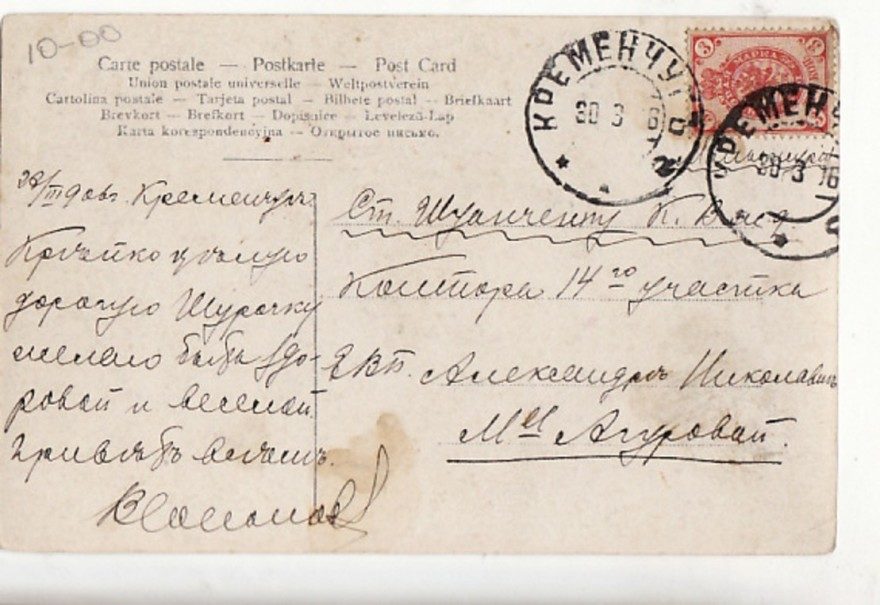 10-00
Carte postale — Postkarte — Post Card
Union postale universelle — Weltpostverein
Cartolina postale — Tarjeta postal — Bilhete postal — Briefkaart
Brevkort — Brefkort — Dopisnice — Levelezö-Lap
Karta korespondencyjna — Открытое письмо.
КРЕМЕНЧУГЪ
30 3
КРЕМЕНЧ
30 3
3
3
МАРКА
Кременчугъ
Крѣпко цѣлую
дорогую Шурочку
желаю быть здо-
ровой и веселой.
Привѣтъ всѣмъ.
Ст.
Контора 14го участка
Александрѣ Николаевнѣ
Агуровой.